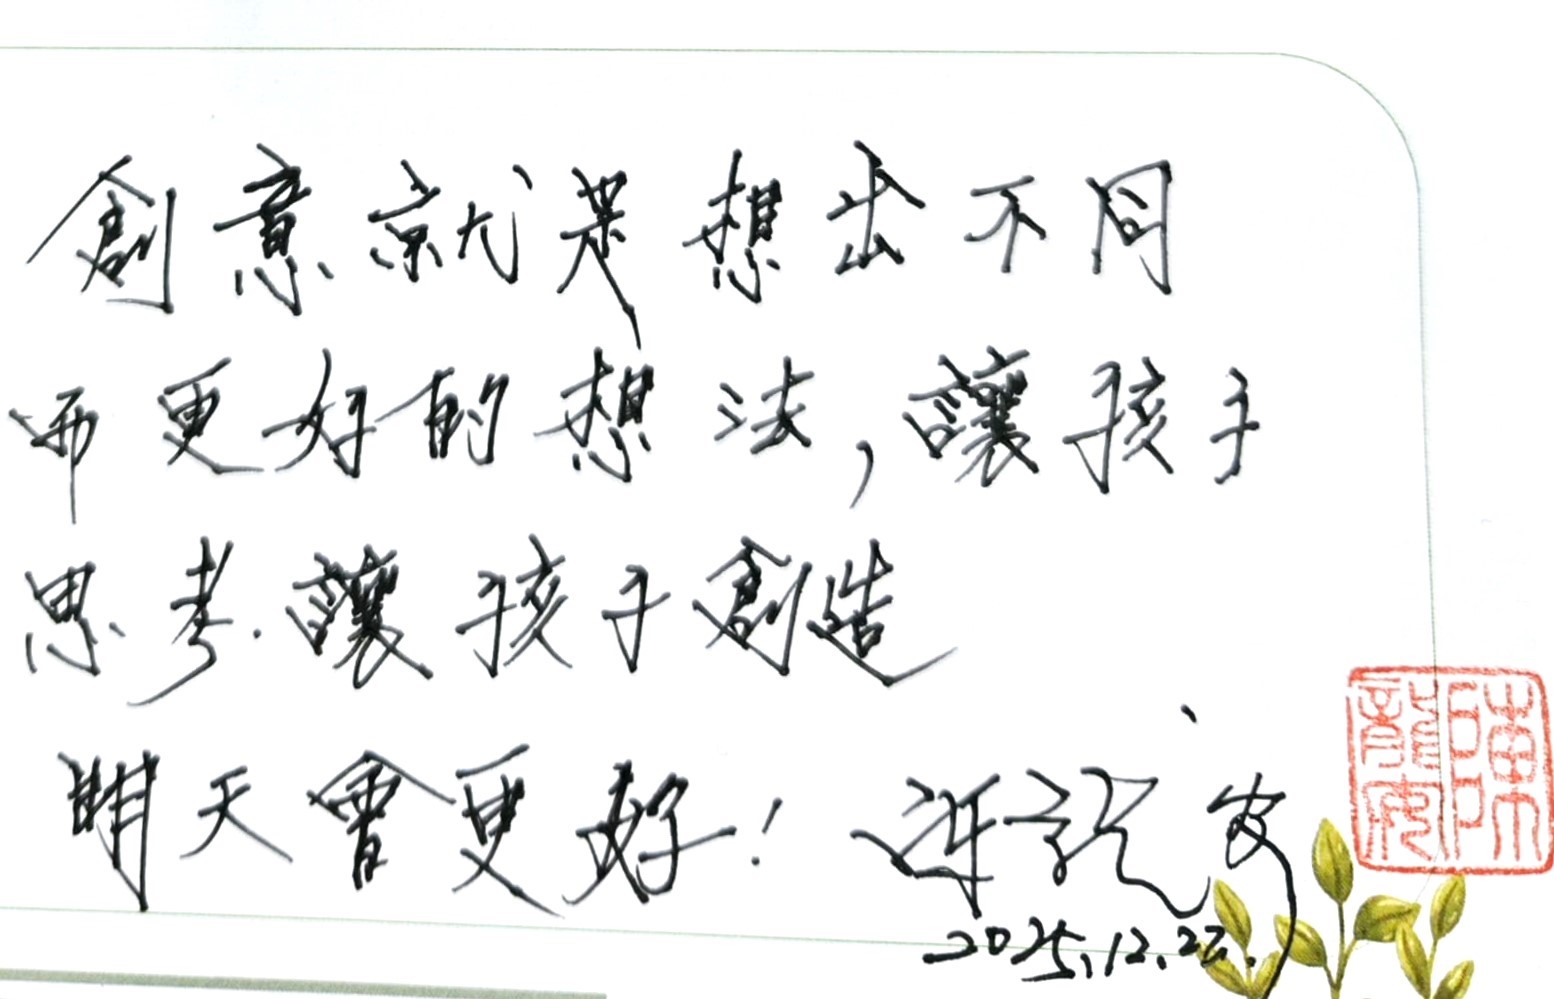 創意就是想出不同
而更好的想法，讓孩子
思考．讓孩子創造
明天會更好！陳龍安
2025.12.22.
陳龍安